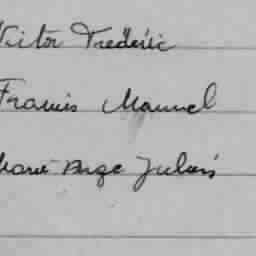 Victor Frederic
Francis Manuel
Marie-Ange Julien